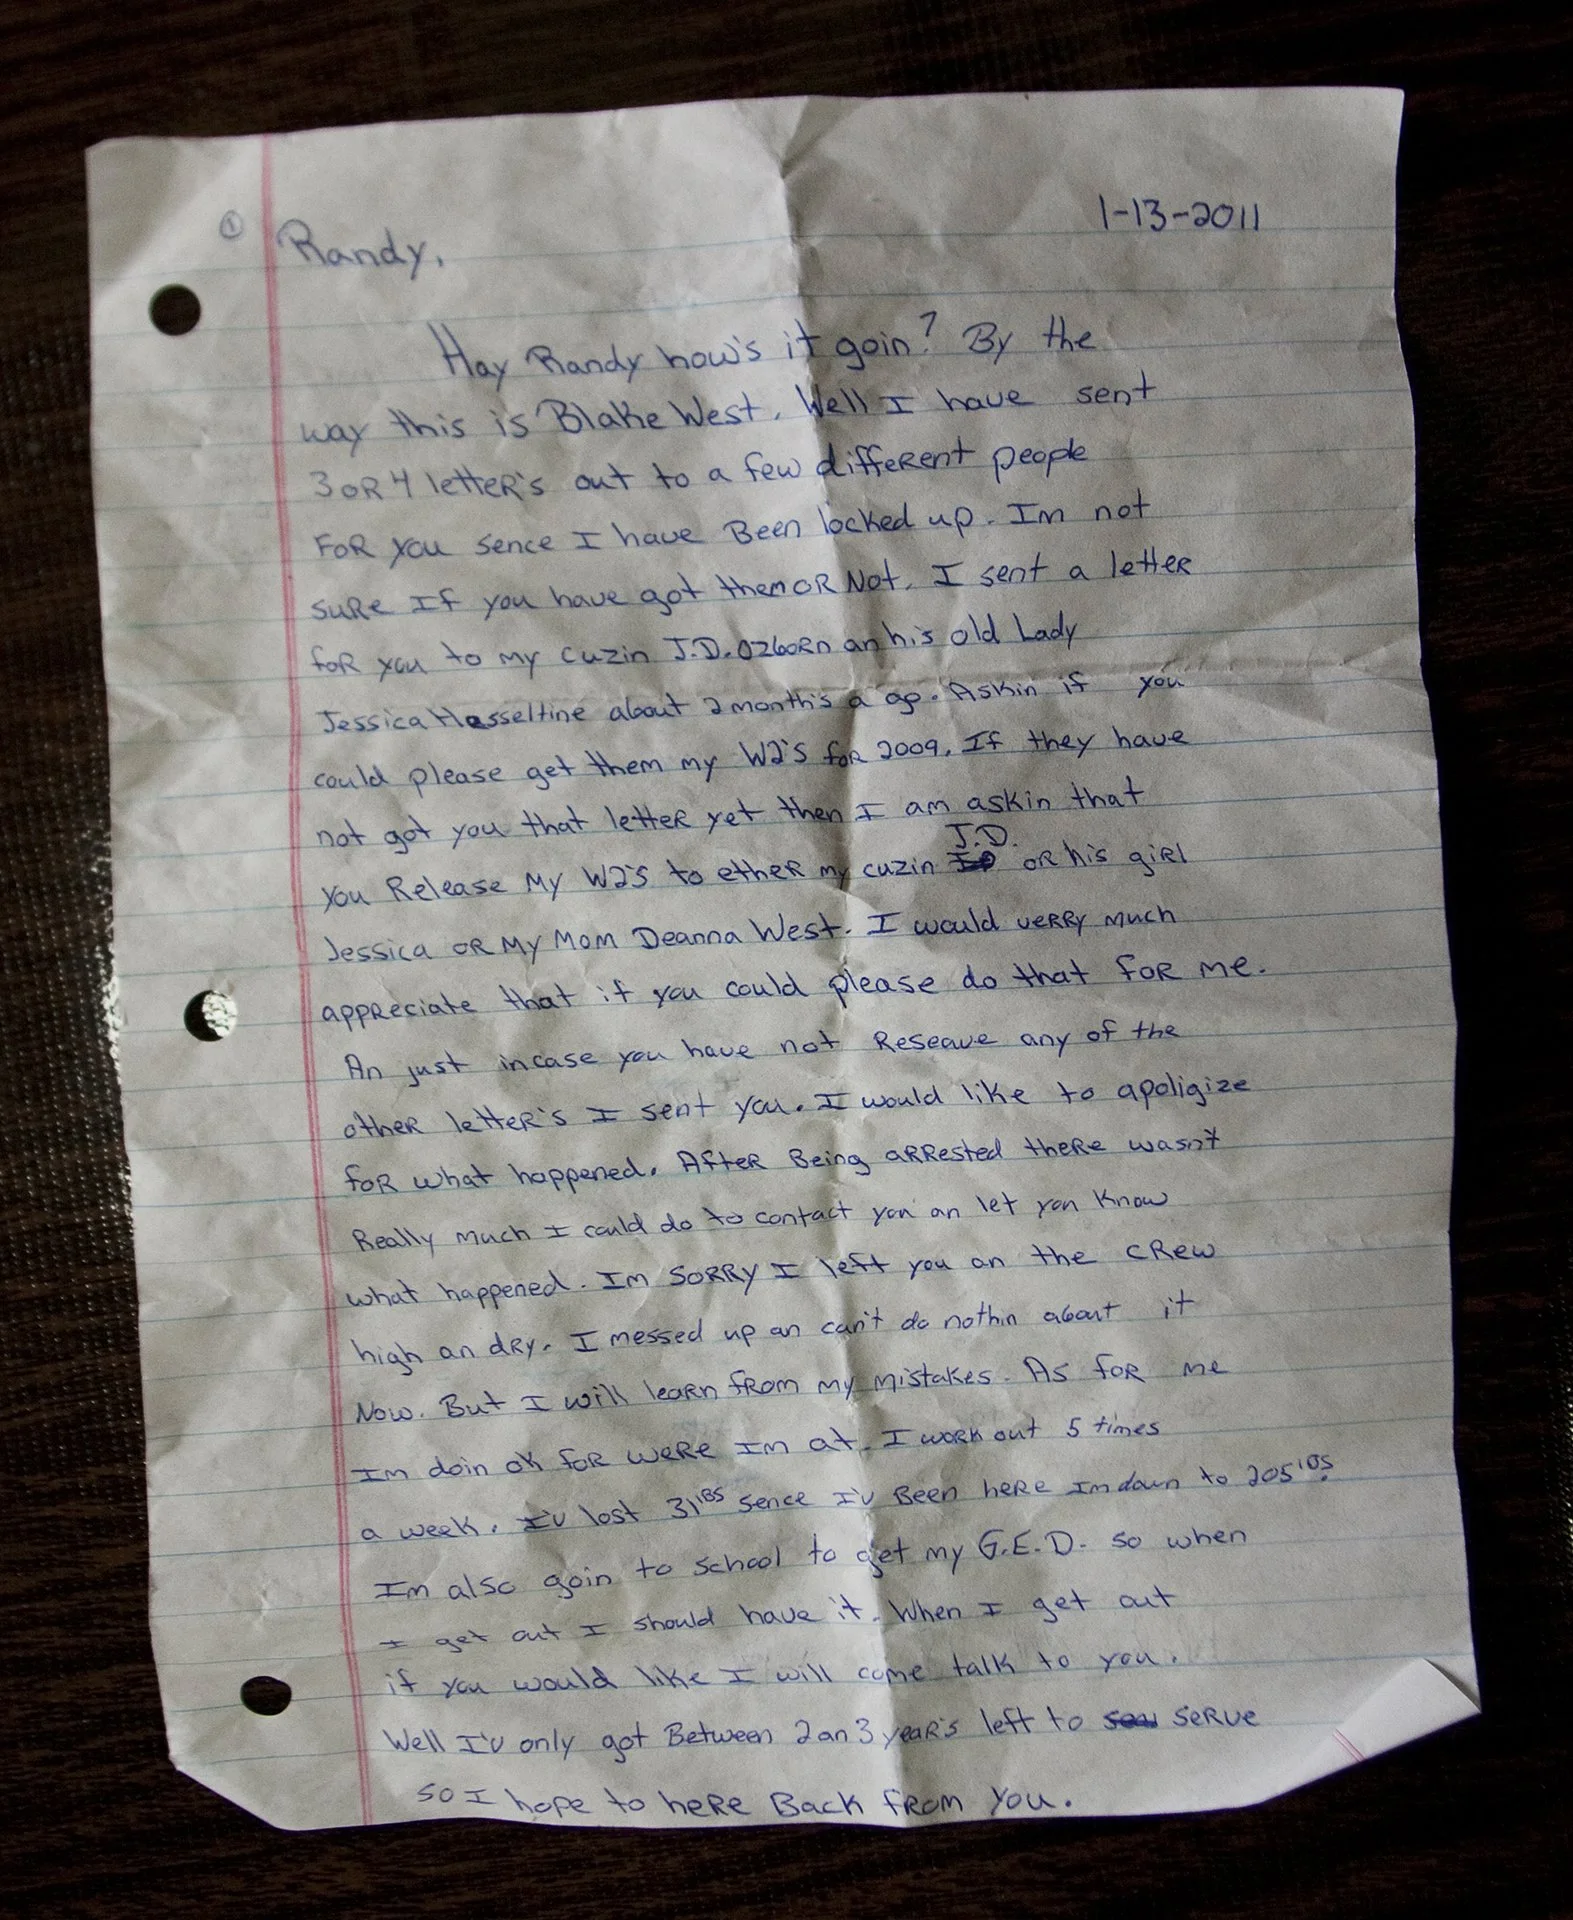 ① Randy,
1-13-2011
Hay Randy how's it goin? By the
way this is Blake West. Well I have sent
3 OR 4 letteR's out to a few diffeRent people
FoR you sence I have Been locked up. Im not
suRe If you have got them OR Not. I sent a letteR
foR you to my cuzin J.D. OzboRn an his old Lady
Jessica Hesseltine about 2 month's a go. Askin if you
could please get them my W2'S foR 2009. If they have
not got you that letteR yet then I am askin that
you Release My W2'S to etheR my cuzin J.D. OR his giRl
Jessica OR My Mom Deanna West. I would veRRy much
appReciate that if you could please do that foR me.
An just incase you have not Reseave any of the
otheR letteR's I sent you. I would like to apoligize
foR what happened. AfteR Being aRRested theRe wasn't
Really much I could do to contact you an let you know
what happened. Im SORRY I left you an the cRew
high an dRy. I messed up an can't do nothin about it
Now. But I will leaRn fRom my mistakes. As foR me
Im doin ok foR weRe Im at. I woRk out 5 times
a week. I'v lost 31lBS sence I'v Been heRe Im down to 205lbs.
Im also goin to school to get my G.E.D. so when
I get out I should have it. When I get out
if you would like I will come talk to you.
Well I'v only got Between 2 an 3 yeaR's left to seRve
so I hope to heRe Back fRom you.